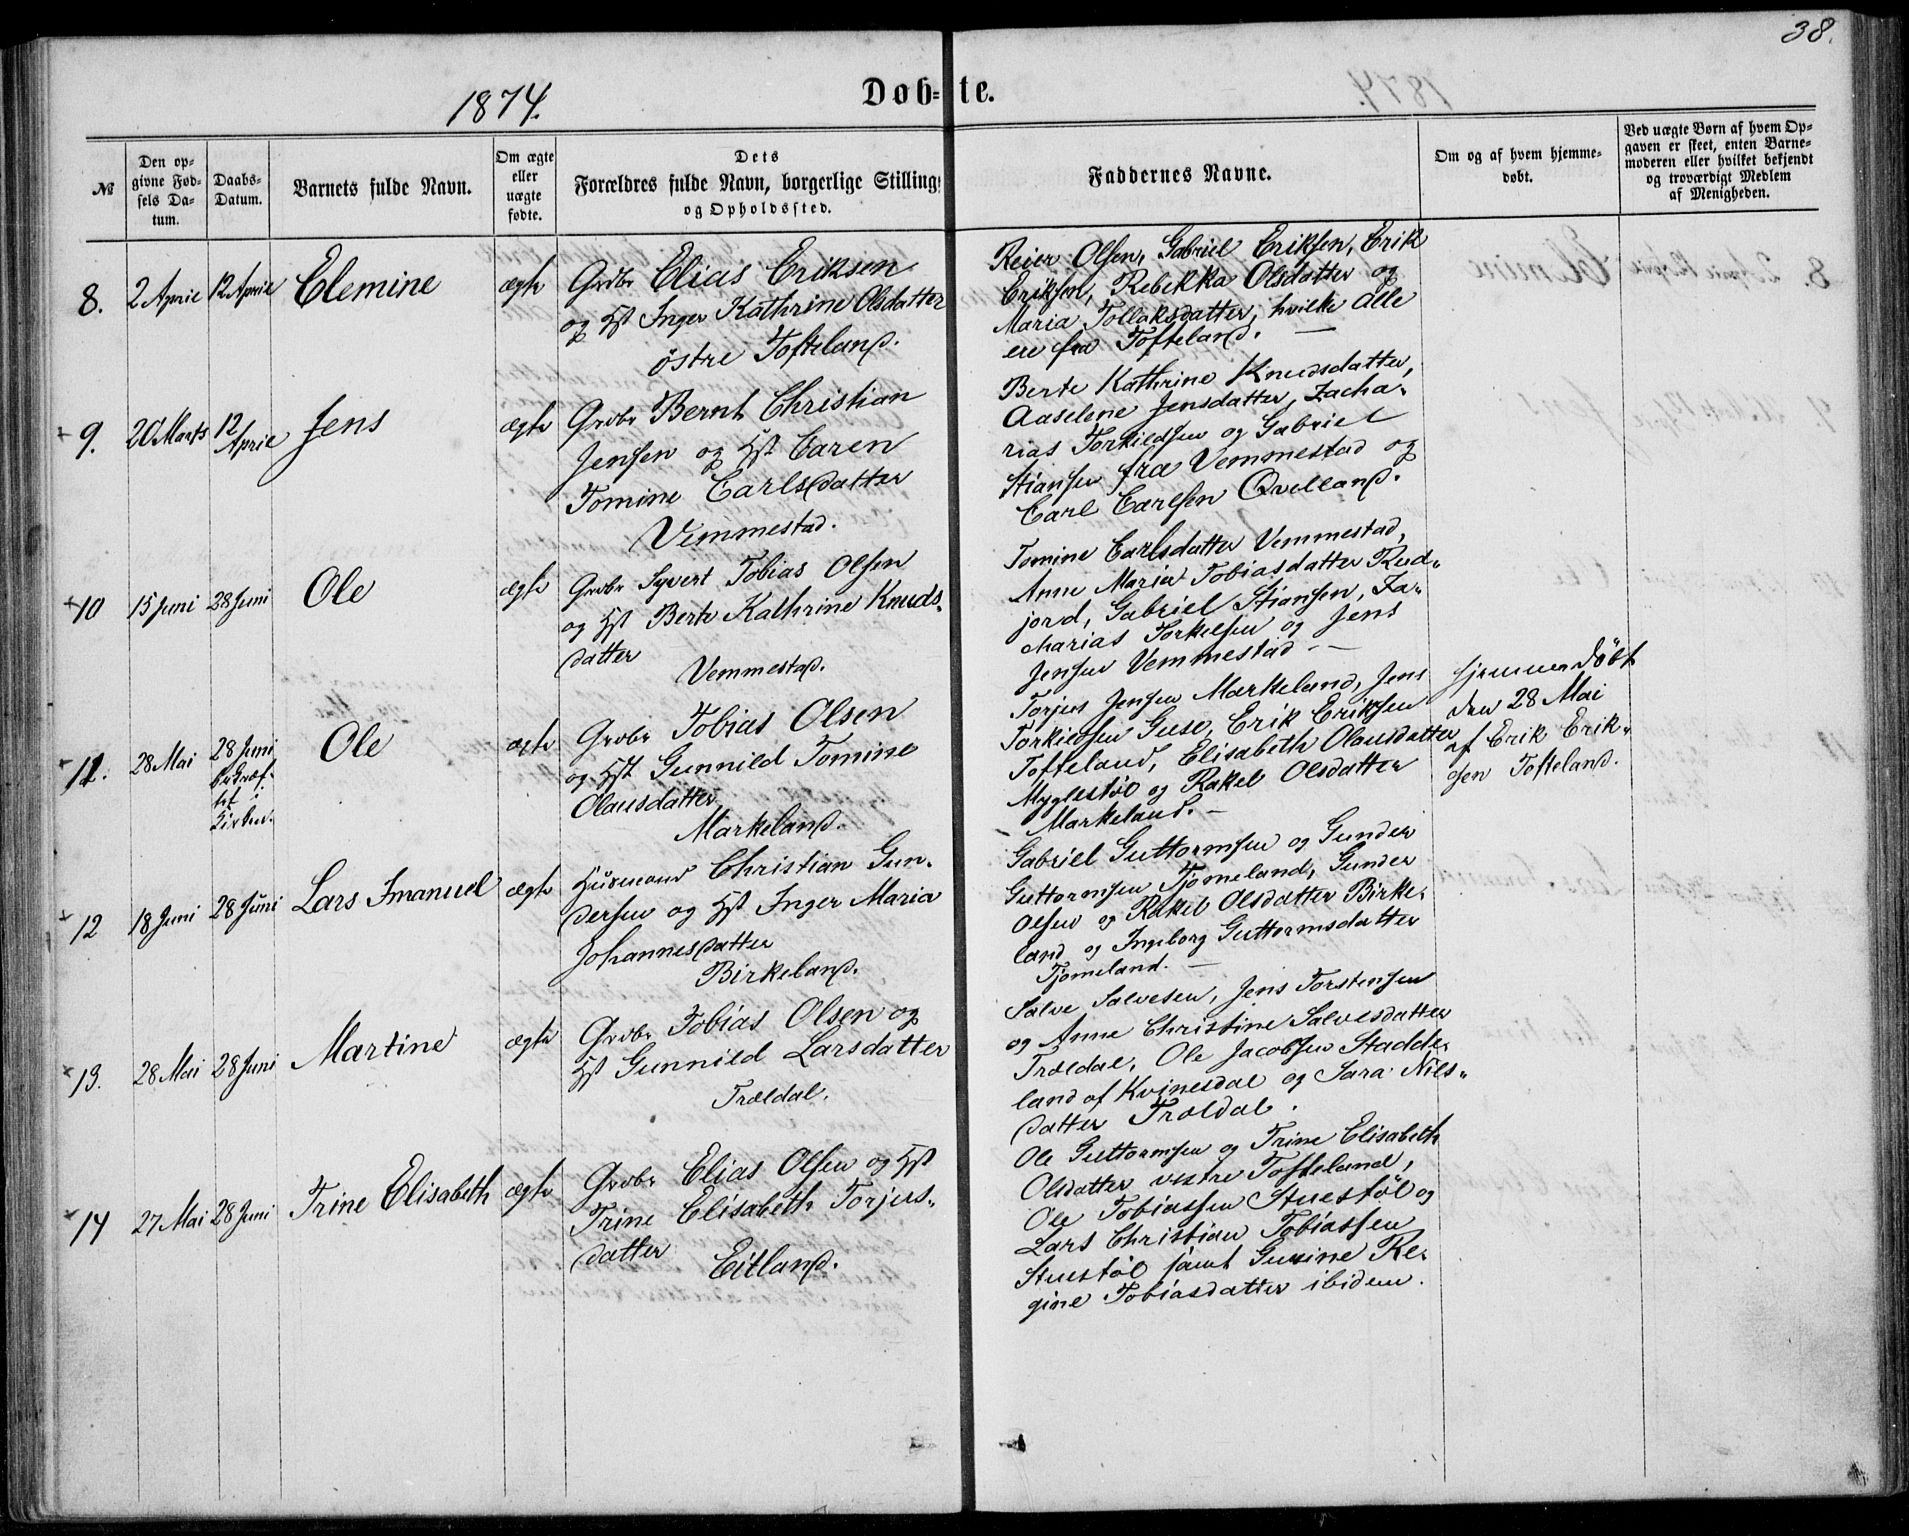 38.
1874.
Døb-te.
№
Den op-
givne Fød-
sels Da-
tum.
Daabs-
Datum.
Barnets fulde Navn.
Om ægte
eller
uægte
fødte.
Dets
Forældres fulde Navn, borgerlige Stilling
og Opholdssted.
Faddernes Navne.
Om og af hvem hjemme-
døbt.
Ved uægte Børn af hvem Op-
gaven er skeet, enten Barne-
moderen eller hvilket bekjendt
og troværdigt Medlem
af Menigheden.
8.
2 April
12 April
Elemine
ægte
Grdbr Elias Eriksen
og Hst Inger Kathrine Olsdatter
østre Tofteland.
Reier Olsen, Gabriel Eriksen, Erik
Eriksen, Rebekka Olsdatter og
Maria Tollaksdatter, hvilke alle
ere fra Tofteland. —
9.
20 Marts
12
April
Jens
ægte
Grdbr Bernt Christian
Jensen og Hst Caren
Tomine Carlsdatter
Vemmestad.
Berte Kathrine Knudsdatter,
Aaselene Jensdatter, Zacha-
rias Torkildsen og Gabriel
Stiansen fra Vemmestad og
Carl Carlsen Qvelland.
10
15 Juni
28 Juni
Ole
ægte
Grdbr Syvert Tobias Olsen
og Hst Berte Kathrine Knuds-
datter
Vemmestad.
Tomine Carlsdatter Vemmestad,
Anne Maria Tobiasdatter Rud-
jord, Gabriel Stiansen, Za-
charias Torkelsen og Jens
Jensen Vemmestad —
11.
28 Mai
28 Juni
bekræf-
tet i
Kirken.
Ole
ægte
Grdbr Tobias Olsen
og Hst Gunnild Tomine
Olausdatter
Markeland.
Torjus Jensen Markeland, Jens
Torkildsen Guse, Erik Eriksen
Tofteland, Elisabeth Olausdatter
Myglestøl og Rakel Olsdatter
Markeland. —
Hjemmedøbt
den 28 Mai
af Erik Erik-
sen Tofteland.
12
18 Juni
28 Juni
Lars Imanuel
ægte
Husmand Christian Gun-
dersen og Hst Inger Maria
Johannesdatter
Birkeland.
Gabriel Guttormsen og Gunder
Guttormsen Tjomeland, Gunder
Olsen og Rakel Olsdatter Birke-
land og Ingeborg Guttormsdatter
Tjomeland. —
13.
28 Mai
28 Juni
Martine
ægte
Grdbr Tobias Olsen og
Hst Gunnild Larsdatter
Trældal.
Salve Salvesen, Jens Torstensen
og Anne Christine Salvesdatter
Trældal, Ole Jacobsen Stadde-
land af Kvinesdal og Sara Niels-
datter Trældal.
14
27 Mai
28 Juni
Trine Elisabeth
ægte
Grdbr Elias Olsen og Hst
Trine Elisabeth Torjus-
datter
Eitland.
Ole Guttormsen og Trine Elisabeth
Olsdatter vestre Tofteland,
Ole Tobiassen Stuestøl og
Lars Christian Tobiassen
Stuestøl samt Gusine Re-
gine Tobiasdatter ibidem.